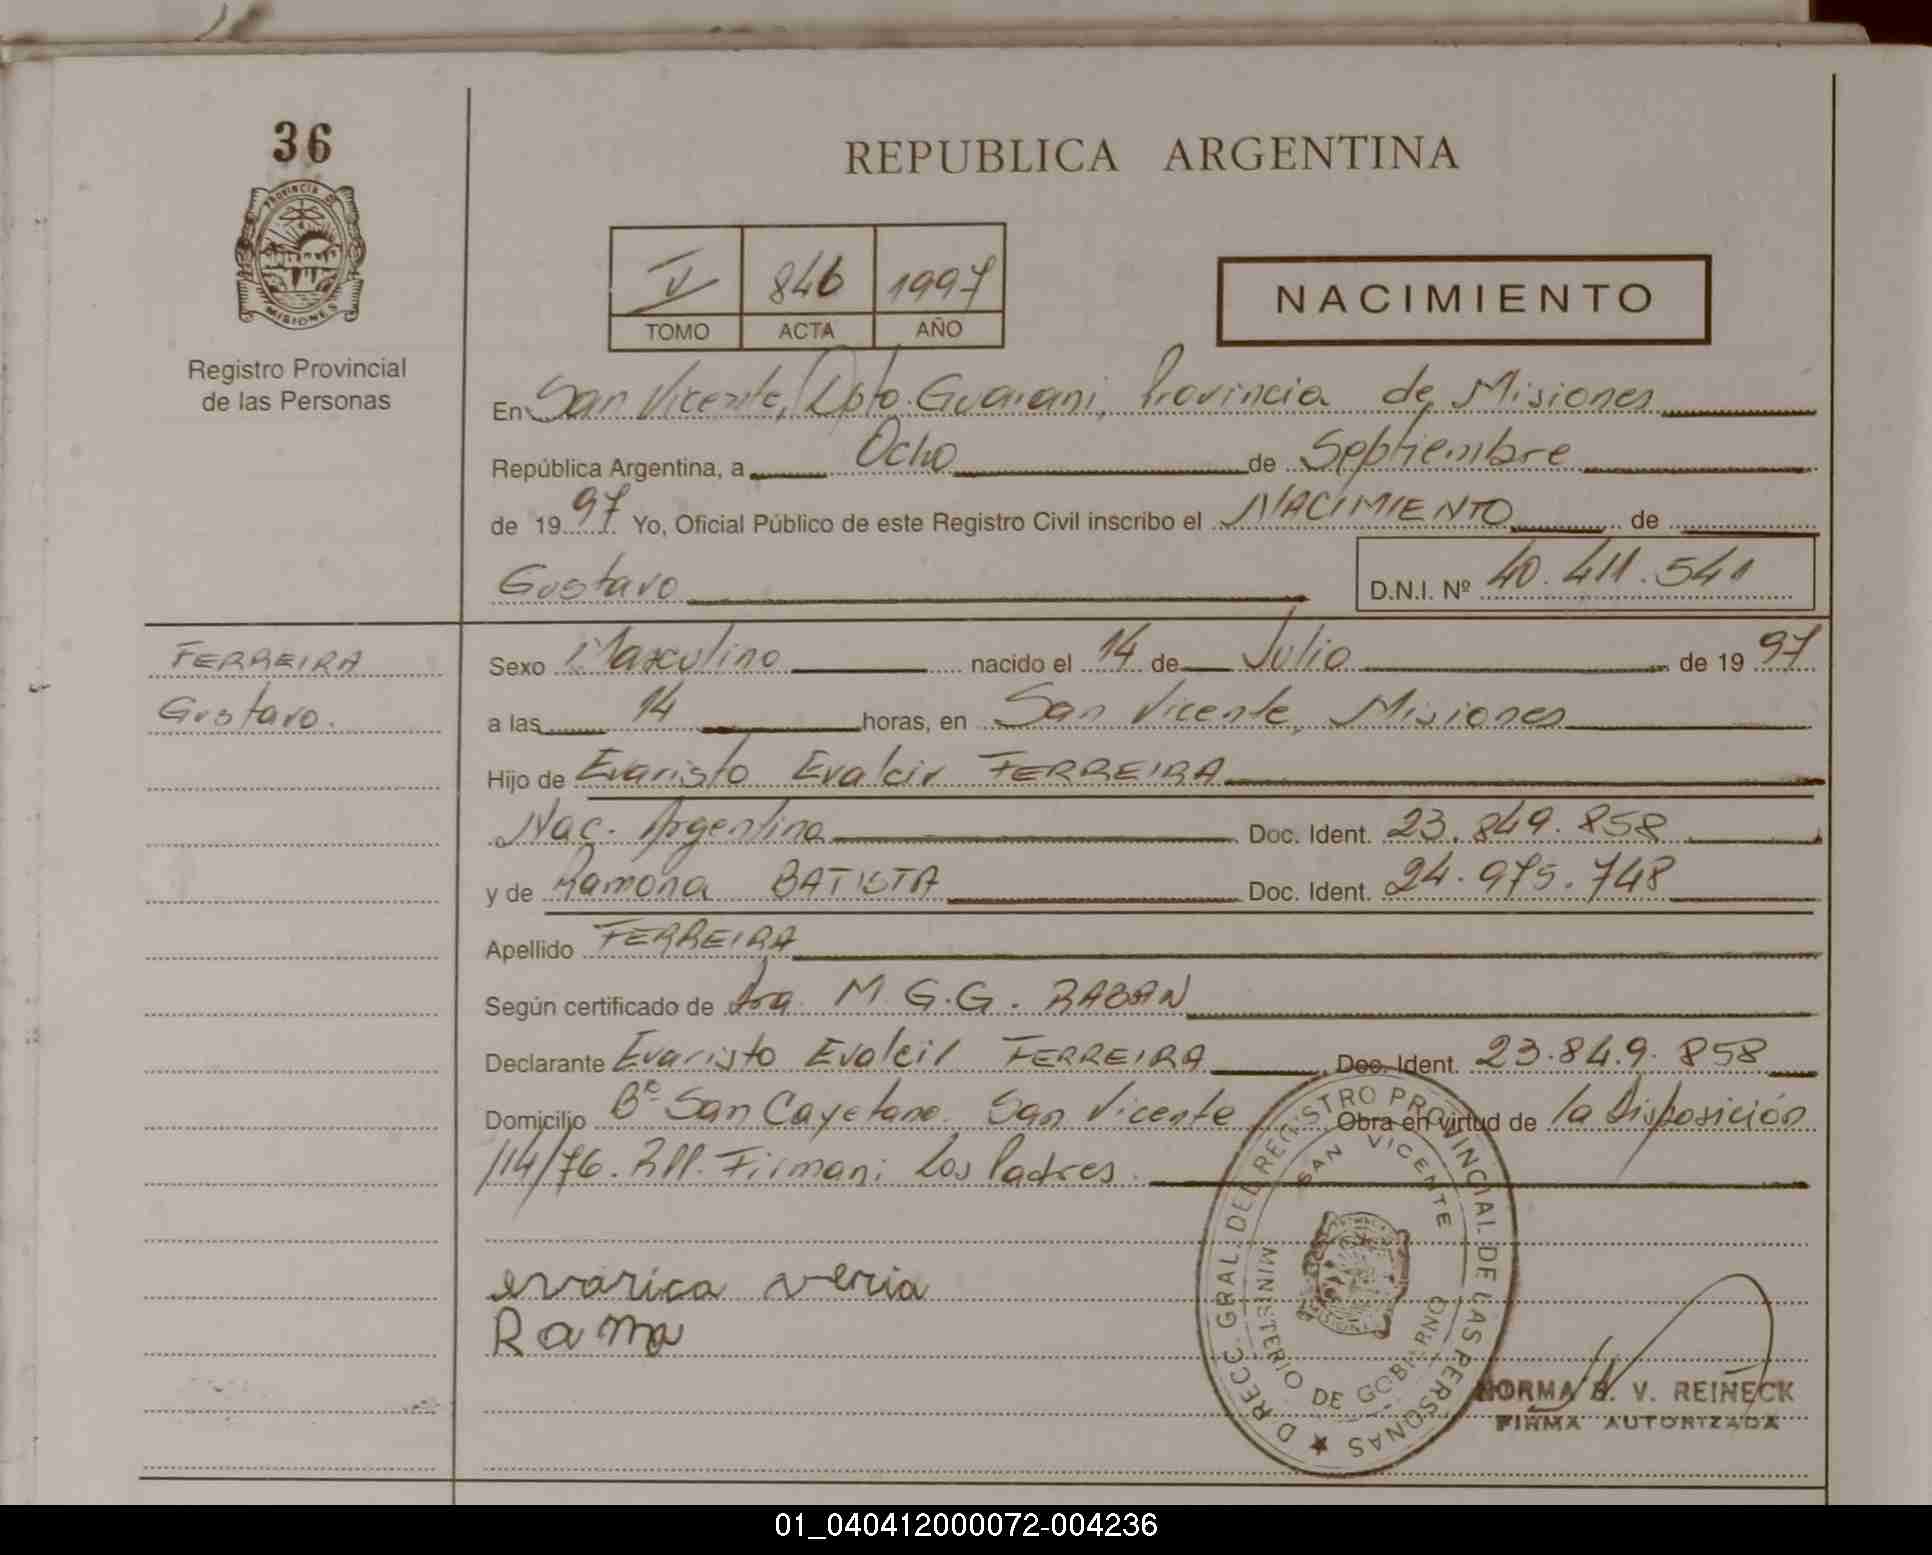 36
PROVINCIA DE
MISIONES
Registro Provincial
de las Personas
REPUBLICA ARGENTINA
V 846 1997
TOMO ACTA AÑO
NACIMIENTO
En San Vicente, Dpto. Guarani, Provincia de Misiones
República Argentina, a Ocho de Septiembre
de 1997 Yo, Oficial Público de este Registro Civil inscribo el NACIMIENTO de
Gustavo D.N.I. Nº 40.411.541
FERREIRA
Gustavo.
Sexo Masculino nacido el 14 de Julio de 1997
a las 14 horas, en San Vicente, Misiones
Hijo de Evaristo Evalcir FERREIRA
Nac. Argentina Doc. Ident. 23.849.858
y de Ramona BATISTA Doc. Ident. 24.975.748
Apellido FERREIRA
Según certificado de Dra. M.G.G. RABAN
Declarante Evaristo Evalcir FERREIRA Doc. Ident. 23.849.858
Domicilio Bº San Cayetano. San Vicente Obra en virtud de la Disposición
114/76. Firman: Los Padres.
Rama
DIRECC. GRAL. DEL REGISTRO PROVINCIAL DE LAS PERSONAS
SAN VICENTE
MINISTERIO DE GOBIERNO
NORMA B. V. REINECK
FIRMA AUTORIZADA
01_040412000072-004236